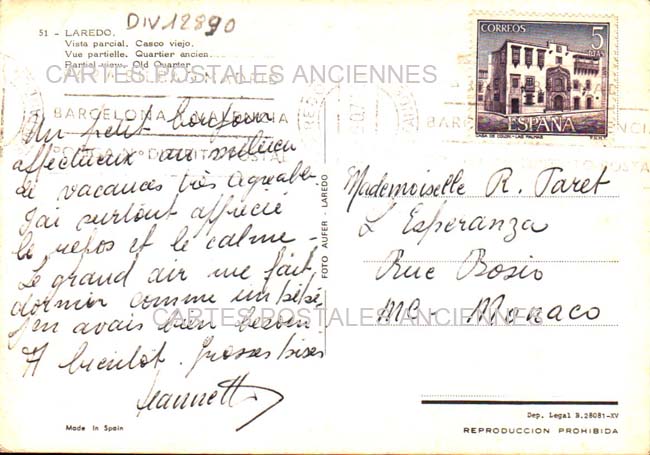 DIV12890
51 - LAREDO.
Vista parcial. Casco viejo.
Vue partielle. Quartier ancien.
Partial view. Old Quarter.
CARTES POSTALES ANCIENNES
BARCELONA VALENCIA
Un petit bonjour
affectueux au milieu
de vacances très agréable
J'ai surtout apprécié
le repos et le calme -
Le grand air me fait
dormir comme un bébé
J'en avais bien besoin
A bientôt. Grosses bises
Jeannette
Made in Spain
FOTO AUFER - LAREDO
CORREOS
5
PTAS
ESPAÑA
CASA DE COLON - LAS PALMAS
Mademoiselle R. Taret
L'Esperanza
Rue Bosio
MC - Monaco
CARTES POSTALES ANCIENNES
Dep. Legal B.28081-XV
REPRODUCCION PROHIBIDA